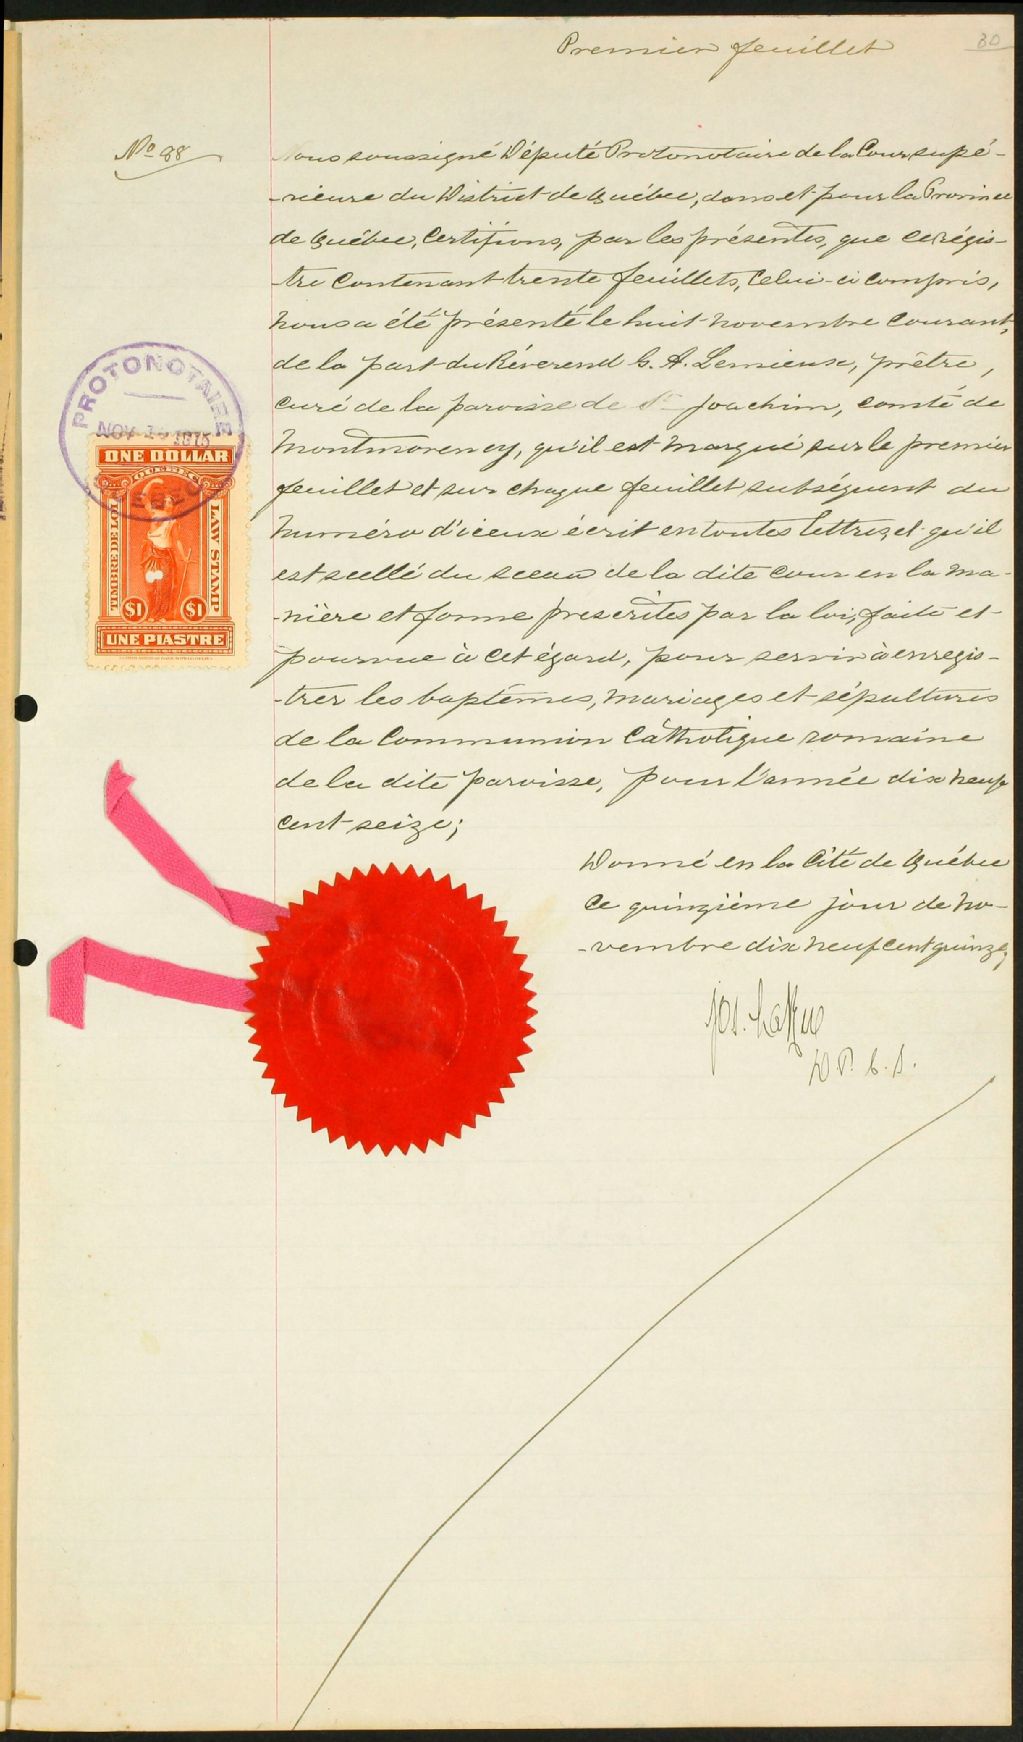 Premier feuillet
30
No 88
Nous soussigné Député Protonotaire de la Cour supé-
-rieure du District de Québec, dans et pour la Province
de Québec, Certifions, par les présentes, que ce régis-
tre Contenant trente feuillets, Celui-ci compris,
nous a été présenté le huit novembre courant,
de la part du Révérend G. A. Lemieux, prêtre,
curé de la paroisse de St Joachim, comté de
Montmorency, qu'il est marqué sur le premier
feuillet et sur chaque feuillet subséquent du
numéro d'iceux écrit en toutes lettres et qu'il
est scellé du sceau de la dite cour en la ma-
-nière et forme prescrites par la loi, faite et
pourvue à cet égard, pour servir à enregis-
-trer les baptêmes, mariages et sépultures
de la Communion Catholique romaine
de la dite paroisse, pour l'année dix neuf
cent seize;
Donné en la Cité de Québec
ce quinzième jour de no-
-vembre dix neuf cent quinze;
Jos.
D. P. C. S.
PROTONOTAIRE
NOV 1915
QUEBEC
ONE DOLLAR
QUEBEC
TIMBRE DE LOI
LAW STAMP
$1 $1
UNE PIASTRE